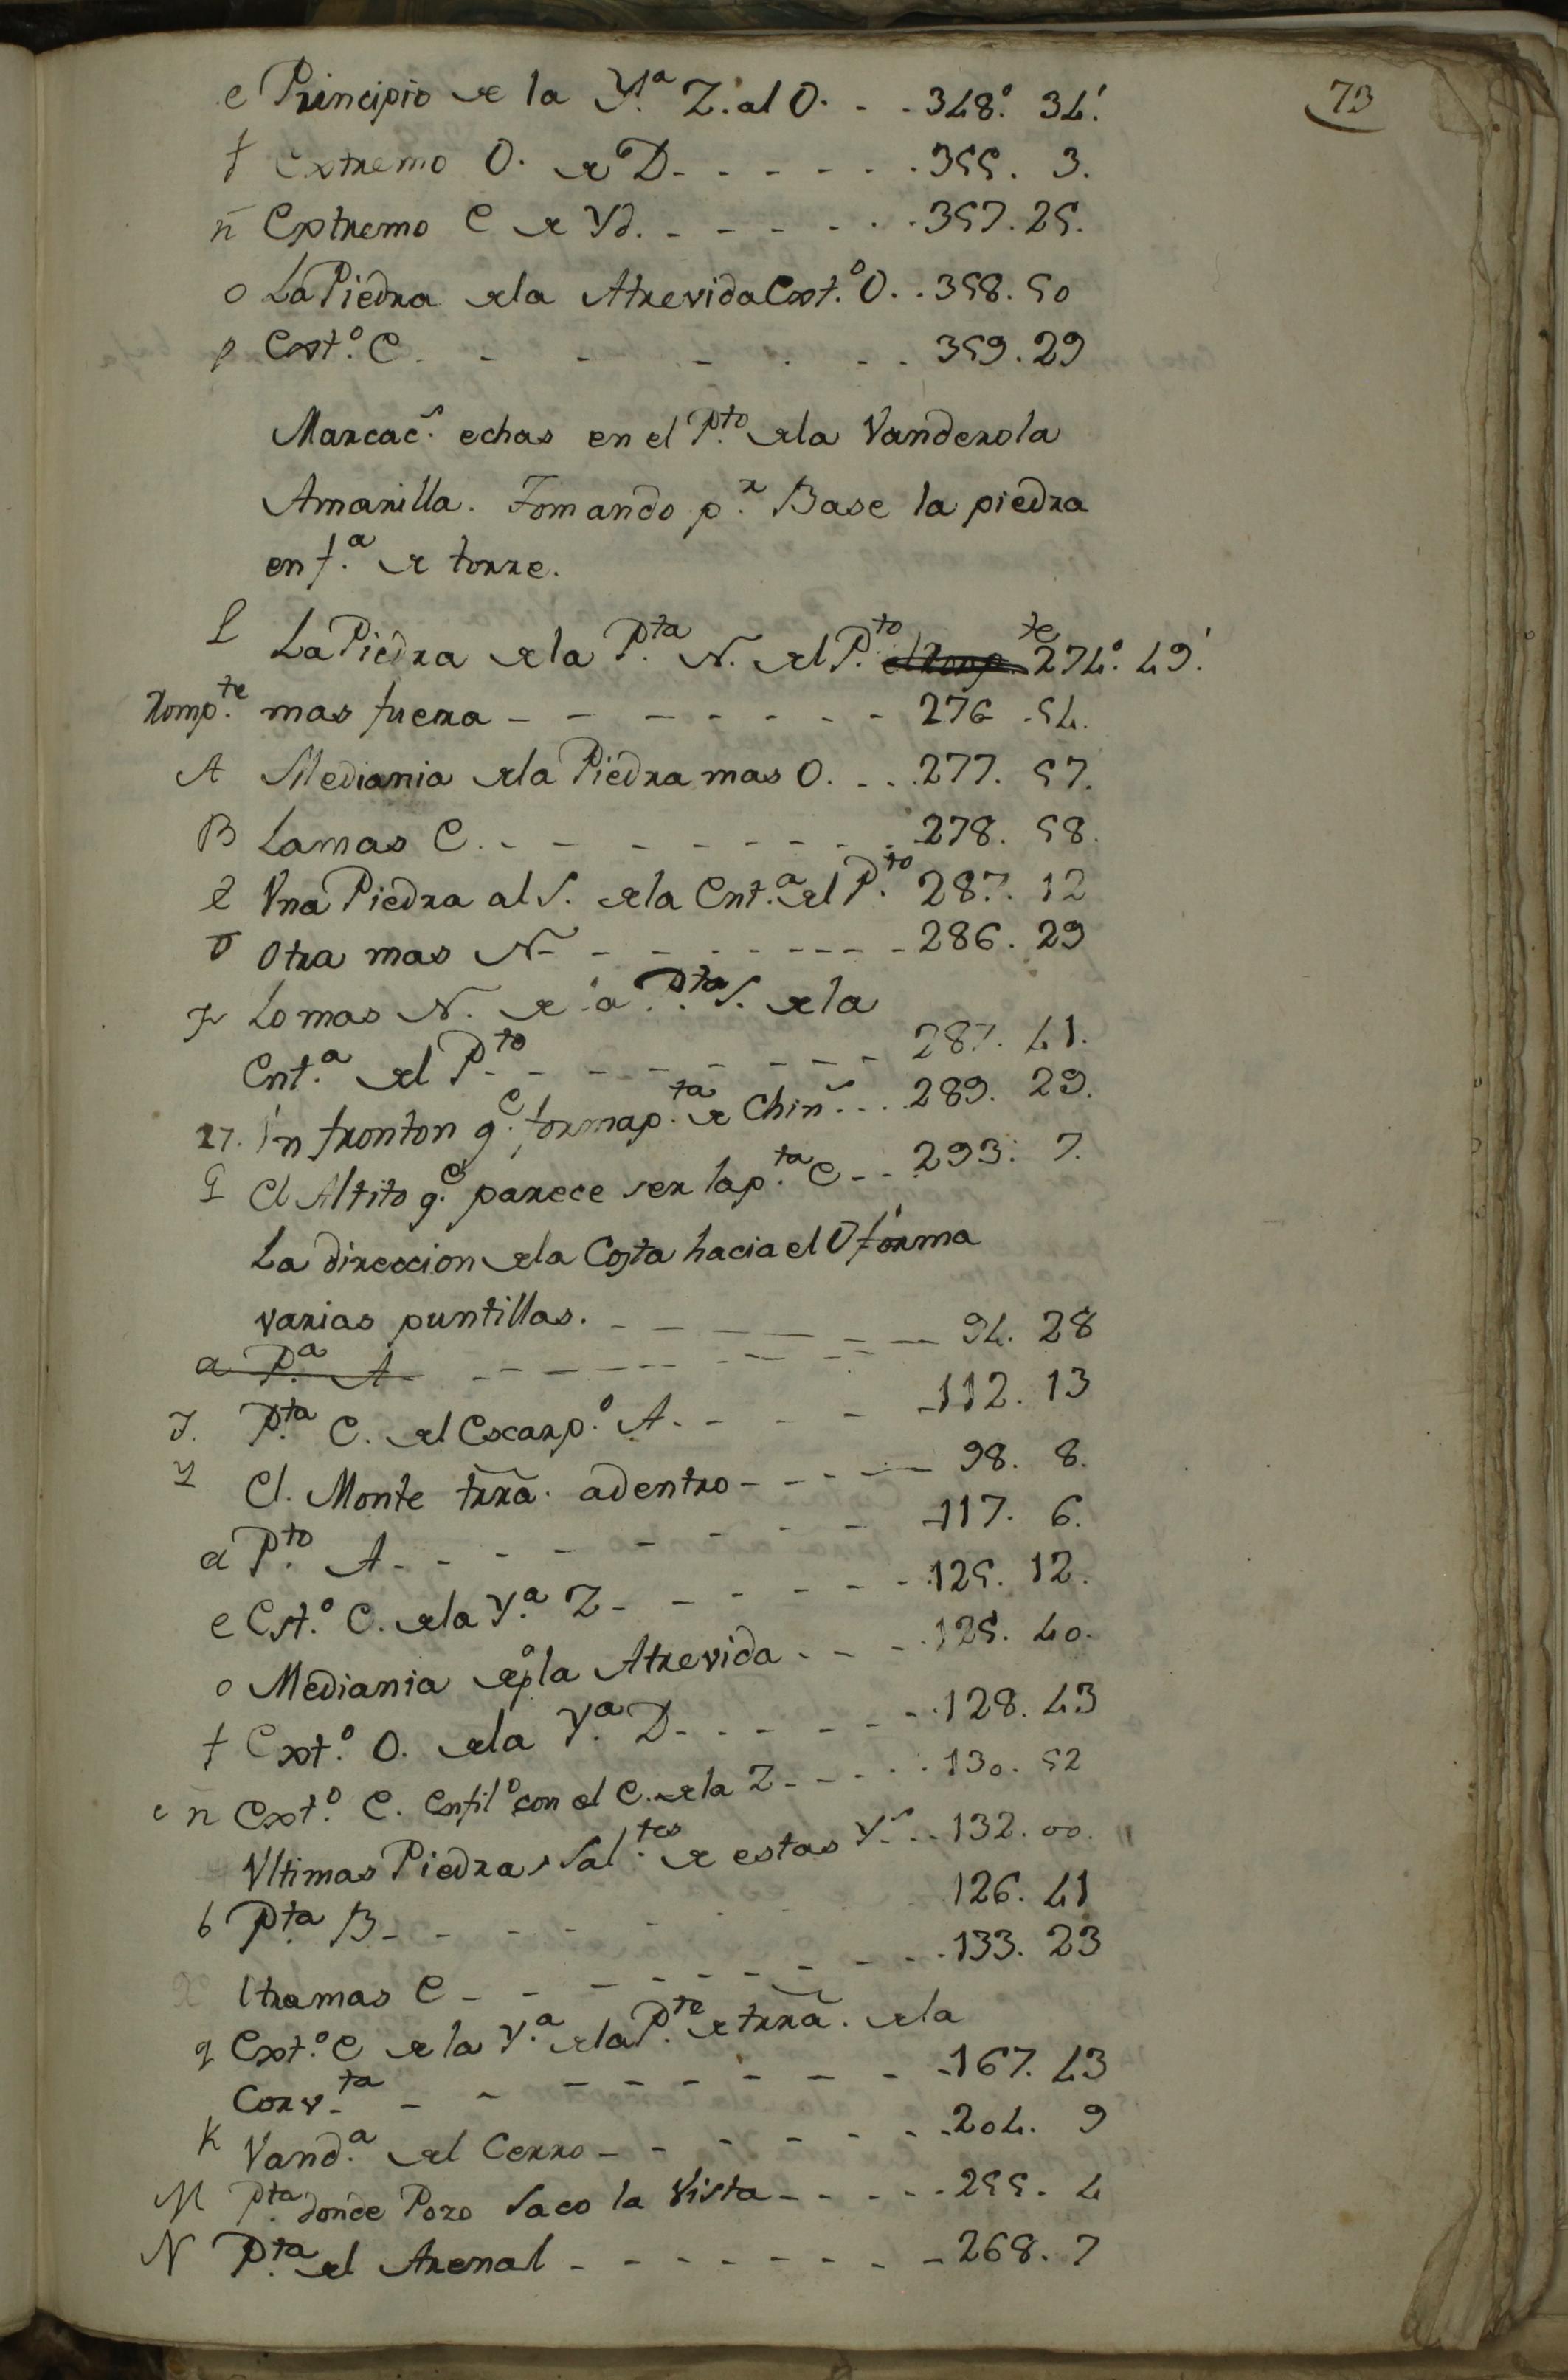 73
e Principio de la Y.ª Z. al O. - - 348.º 34.'
f Extremo O. de D. - - - - - - 355. 3.
ñ Extremo E de Yd. - - - - - - 357. 25.
o La Piedra dela Atrevida Ext.º O. . 358. 50
p Ext.º E. - - - - - - 359. 29
Marcac.s echas en el P.to dela Vanderola
Amarilla. Tomando p.r Base la piedra
en f.a de torre.
L La Piedra dela P.ta N. del P.to 274.º 49.'
Romp.te mas fuera - - - - - - - - 276. 54.
A Mediania dela Piedra mas O. - . . 277. 57.
B La mas E. - - - - - - - - 278. 58.
E Vna Piedra al S. dela Ent.a del P.to 287. 12
Otra mas N - - - - - - - - - 286. 29
Lo mas N. de la P.ta S. dela
Ent.a del P.to - - - - - - - - 287. 41.
27. Vn fronton q.e forma p.ta de Chin.s . . . 289. 29.
G El Altito q.e parece ser la p.ta E - - 293. 7.
La direccion dela Costa hacia el O forma
varias puntillas. - - - - - - - 94. 28
a P.a A - - - - - - -
J. P.ta E. del Escarp.o A. - - - - 112. 13
Y El Monte trrã. adentro - - - - - 98. 8.
a P.to A - - - - - - - - 117. 6.
e Est.º E. dela Y.a Z - - - - - - - 125. 12.
o Mediania de la Atrevida - - - - 125. 40.
f Ext.º O. dela Y.a D - - - - - - 128. 43
ñ Ext.º E. Enfil.o con el E. dela Z - - - - 130. 52
Vltimas Piedras Sal.tes de estas Y.s . . 132. 00.
b P.ta B - - - - - 126. 41
Otra mas E - - - - - - - - 133. 23
q Ext.º E de la Y.a dela P.te de trrã. dela
Corv.ta - - - - - - - - - 167. 43
K Vand.a del Cerro - - - - - - - 204. 9
M P.ta donde Pozo Saco la Vista - - - - - 255. 4
N P.ta del Arenal - - - - - - - - 268. 7